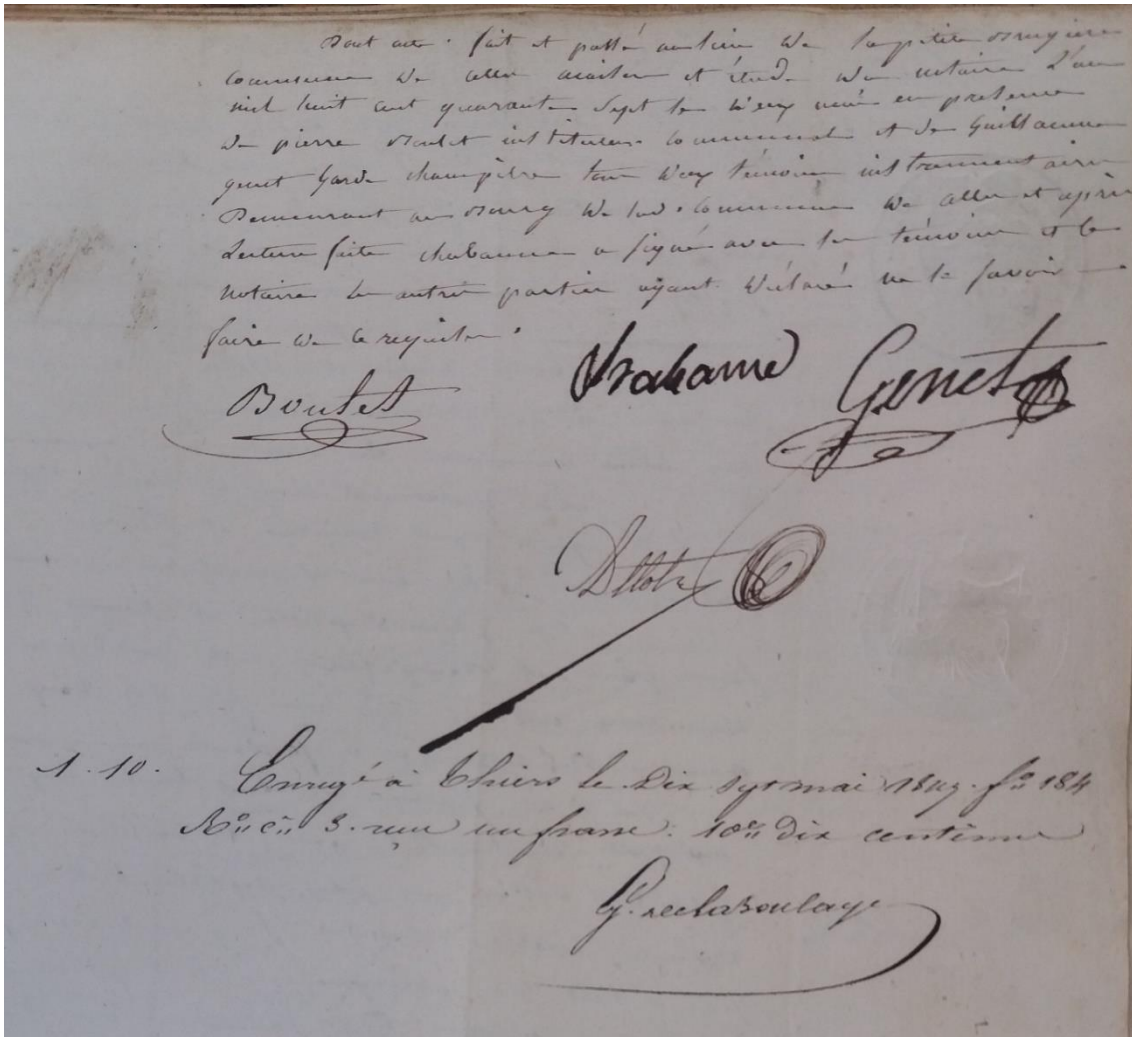 Dont acte. fait et passé au lieu de la petite Brugière
commune de celles maison et étude de notaire L'an
mil huit cent quarante Sept le deux mai en présence
de pierre Boulet instituteur communal et de Guillaume
genet Garde champêtre tous deux témoins instrumentaires
Demeurant au Bourg de lad. commune de celles et après
Lecture faite chabanne a signé avec les témoins et le
notaire les autres parties ayant déclaré ne le savoir
faire de ce requises.
Boulet
Genet
1. 10.
Enregé à Thiers le dix sept mai 1847. fo 184
Ro ce 3. reçu un franc. 10c dix centimes